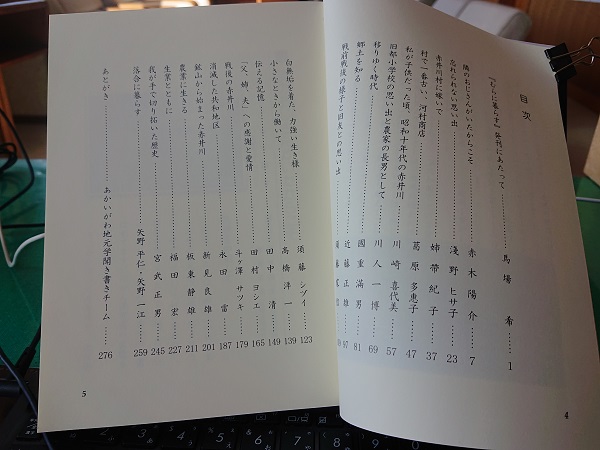 目次
『むらに暮らす』発刊にあたって 馬場 希 1
隣のおじさんがいたからこそ 赤木 陽介 7
忘れられない思い出 淺野 ヒサ子 23
赤井川村に嫁いで 姉帶 紀子 37
村で一番古い、河村商店 葛原 多恵子 47
私が子供だった頃、昭和十年代の赤井川 川﨑 喜代美 57
旧都小学校の思い出と農家の長男として 川人 一博 69
移りゆく時代 國重 満男 81
郷土を知る 近藤 正雄 97
戦前戦後の様子と旧友との思い出
4
白無垢を着た、力強い生き様 須藤 シヅイ 123
小さなときから働いて 髙橋 洋一 139
伝える記憶 田中 清 149
「父、姉、夫」への感謝と愛情 田村 ヨシエ 165
戦後の赤井川 斗ヶ澤 サツキ 179
消滅した共和地区 永田 雷 187
鉱山から始まった赤井川 新見 良雄 201
農業に生きる 板東 静雄 211
生業とともに 福田 宏 227
我が手で切り拓いた歴史 宮武 正男 245
落合に暮らす 矢野 平仁・矢野 一江 259
あとがき あかいがわ地元学聞き書きチーム 276
5